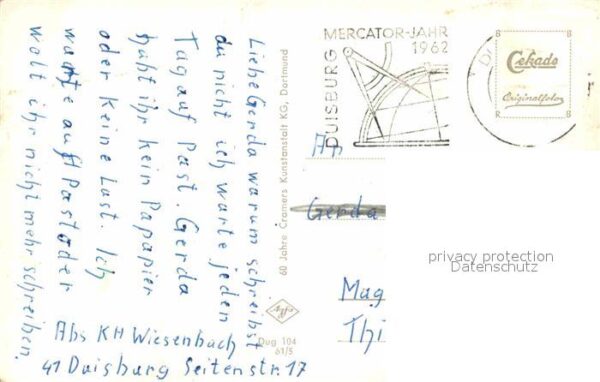 Liebe Gerda warum schreibst
du nicht ich warte jeden
Tag auf Past. Gerda
haht ihr kein Papapier
oder Keine Lust. Ich
warte auf Past oder
wolt ihr nicht mehr schreiben.
Abs KH Wiesenbach
41 Duisburg Seitenstr. 17
60 Jahre Cramers Kunstanstalt KG, Dortmund
Agfa
Dug 104
61/5
DUISBURG
MERCATOR-JAHR
1962
Cekade
Originalfoto
An
Gerda
privacy protection
Datenschutz
Mag
Thi